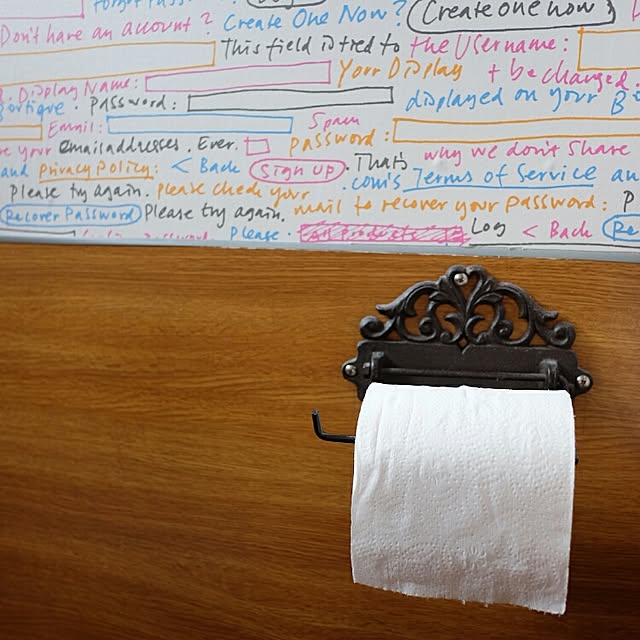 Don't have an account? Create One Now? Create one now
This field is tred to the Username:
Display Name: Your Display + be changed.
Password: displayed on your B
Email: Spam
re your emailaddresses. Ever. password: 
Thats why we don't share
and Privacy Policy: < Back Sign UP .com's Terms of Service an
Please try again. Please check your
Recover Password Please try again. mail to recover your password: P
Please. Log < Back Re